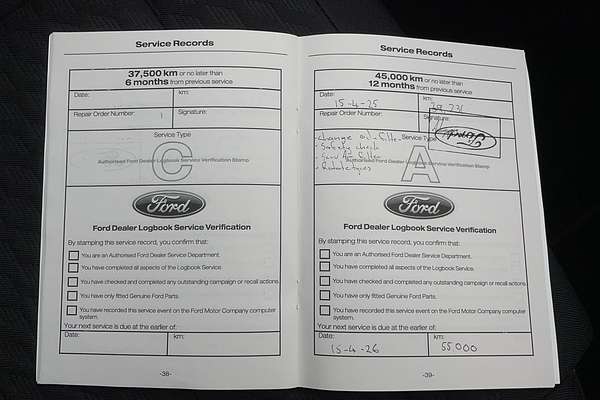 Service Records
37,500 km or no later than
6 months from previous service
Date:
km:
Repair Order Number:
Signature:
Service Type
C
Authorised Ford Dealer Logbook Service Verification Stamp
Ford
Ford Dealer Logbook Service Verification
By stamping this service record, you confirm that:
You are an Authorised Ford Service Department.
You have completed all aspects of the Logbook Service.
You have checked and completed any outstanding campaign or recall actions.
You have only fitted Genuine Ford Parts.
You have recorded this service event on the Ford Motor Company computer
system.
Your next service is due at the earlier of:
Date:
km:
-38-
Service Records
45,000 km or no later than
12 months from previous service
Date:
15-4-25
km:
Repair Order Number:
Signature:
Service Type
- change oil + filter
- Safety check
- Air filter
- Rotate tyres
A
Authorised Ford Dealer Logbook Service Verification Stamp
Ford
Ford Dealer Logbook Service Verification
By stamping this service record, you confirm that:
You are an Authorised Ford Service Department.
You have completed all aspects of the Logbook Service.
You have checked and completed any outstanding campaign or recall actions.
You have only fitted Genuine Ford Parts.
You have recorded this service event on the Ford Motor Company computer
system.
Your next service is due at the earlier of:
Date:
15-4-26
km:
55000
-39-